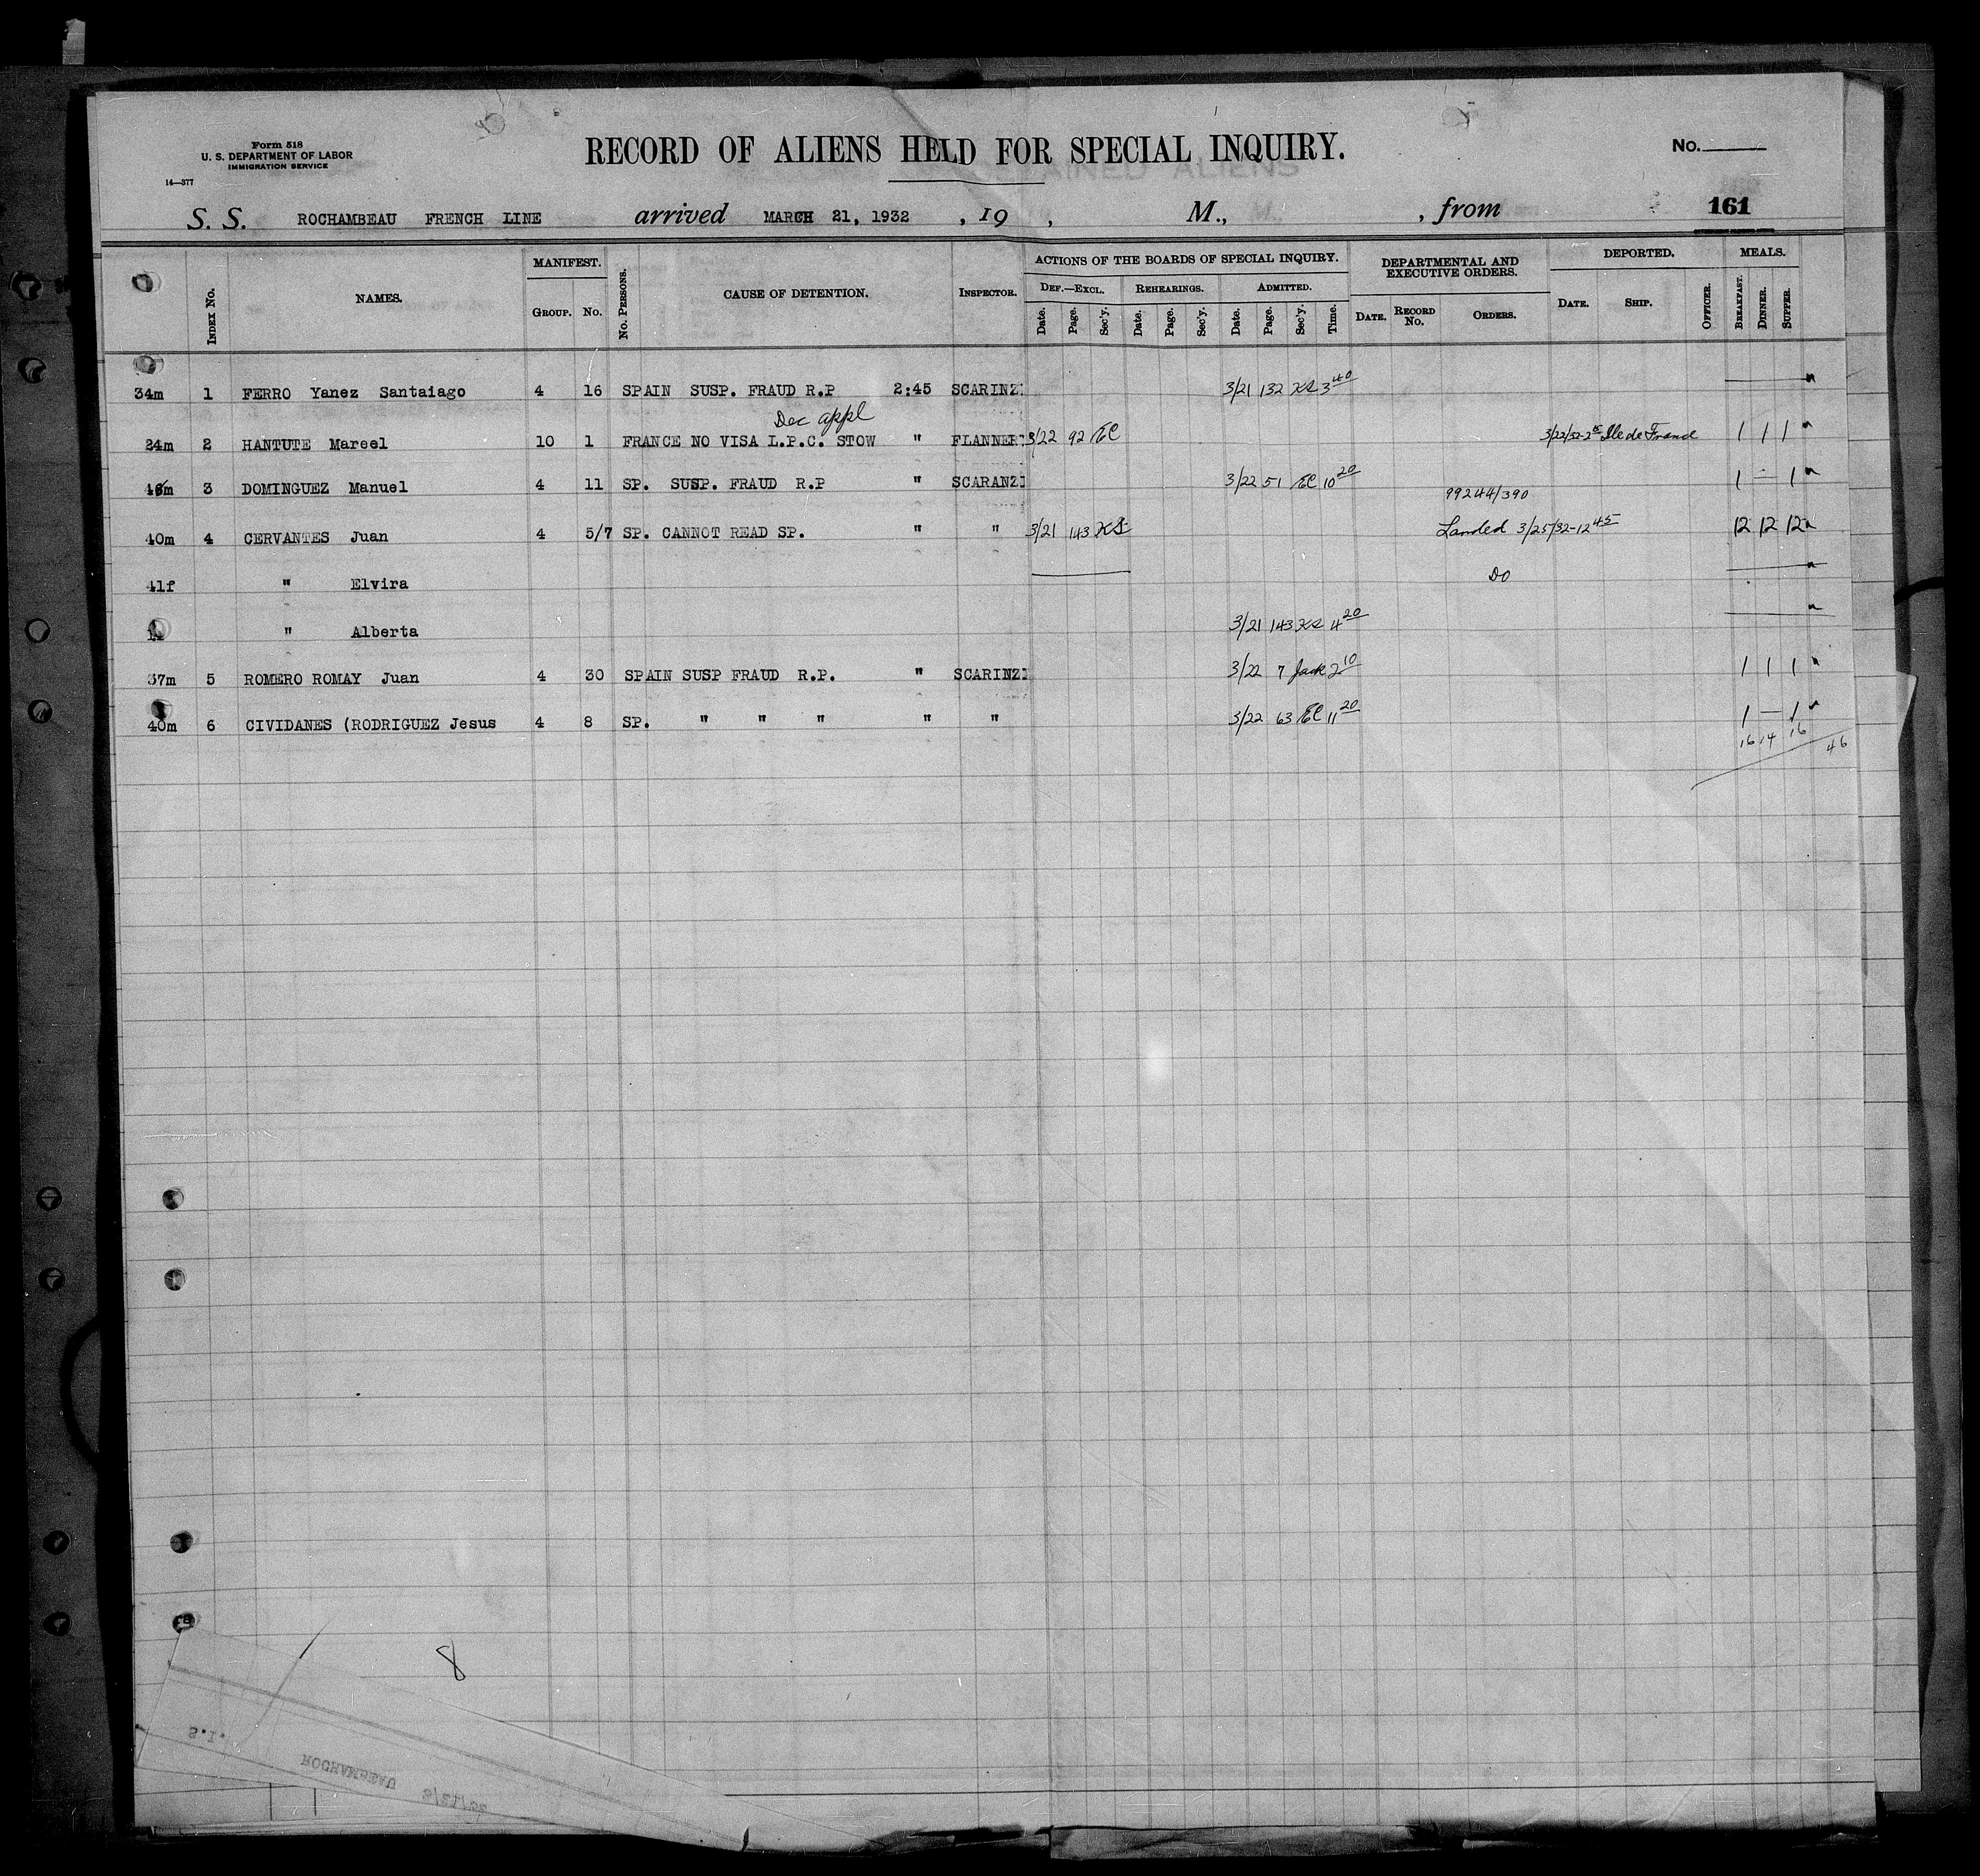 Form 518
U. S. DEPARTMENT OF LABOR
IMMIGRATION SERVICE
14—377
RECORD OF ALIENS HELD FOR SPECIAL INQUIRY.
No.
DETAINED ALIENS
S. S. ROCHAMBEAU FRENCH LINE arrived MARCH 21, 1932 , 19 , M., , from 161
INDEX No. NAMES. MANIFEST. GROUP. No. No. PERSONS. CAUSE OF DETENTION. INSPECTOR. ACTIONS OF THE BOARDS OF SPECIAL INQUIRY. DEF.—EXCL. Date. Page. Sec'y. REHEARINGS. Date. Page. Sec'y. ADMITTED. Date. Page. Sec'y. Time. DEPARTMENTAL AND EXECUTIVE ORDERS. DATE. RECORD No. ORDERS. DEPORTED. DATE. SHIP. OFFICER. MEALS. BREAKFAST. DINNER. SUPPER.
34m 1 FERRO Yanez Santaiago 4 16 SPAIN SUSP. FRAUD R.P 2:45 SCARINZI 3/21 132 KS 3 40
Dec appl
24m 2 HANTUTE Marcel 10 1 FRANCE NO VISA L.P.C. STOW " FLANNER 3/22 92 EC 3/22/32-2 15 Ile de France 1 1 1
3 DOMINGUEZ Manuel 4 11 SP. SUSP. FRAUD R.P " SCARANZI 3/22 51 EC 10 20 1 — 1
99244/390
40m 4 CERVANTES Juan 4 5/7 SP. CANNOT READ SP. " " 3/21 143 KS Landed 3/25/32-12 45 12 12 12
41f " Elvira DO
" Alberta 3/21 143 KS 4 20
37m 5 ROMERO ROMAY Juan 4 30 SPAIN SUSP FRAUD R.P. " SCARINZI 3/22 7 Jack 2 10 1 1 1
40m 6 CIVIDANES (RODRIGUEZ Jesus 4 8 SP. " " " " " 3/22 63 EC 11 20 1 — 1
16 14 16 46
8
S.I.
ROCHAMBEAU 3/21/32